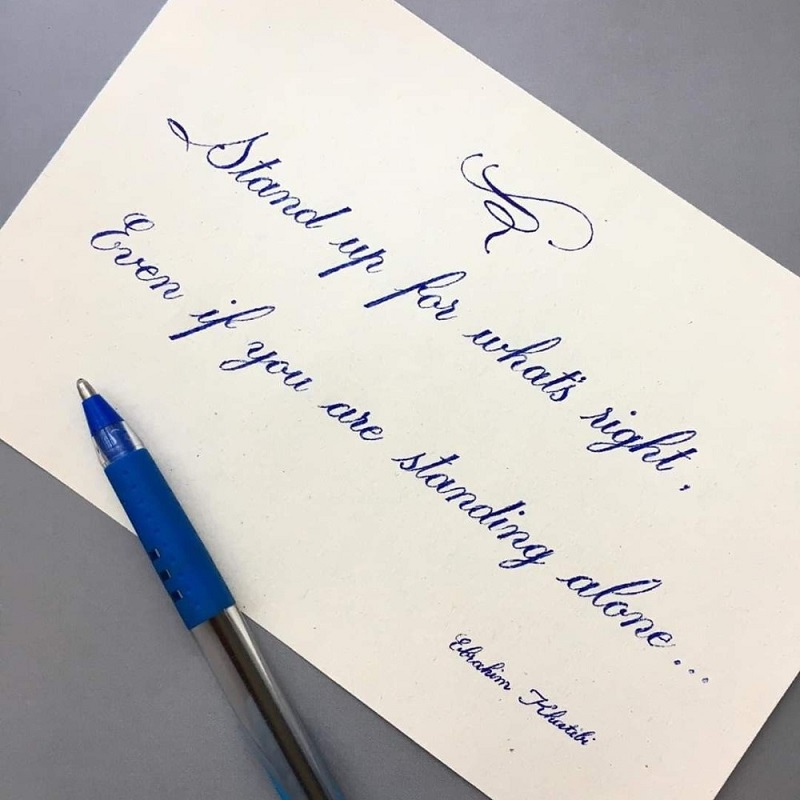 Stand up for what's right,
Even if you are standing alone...
Ebrahim Khatibi